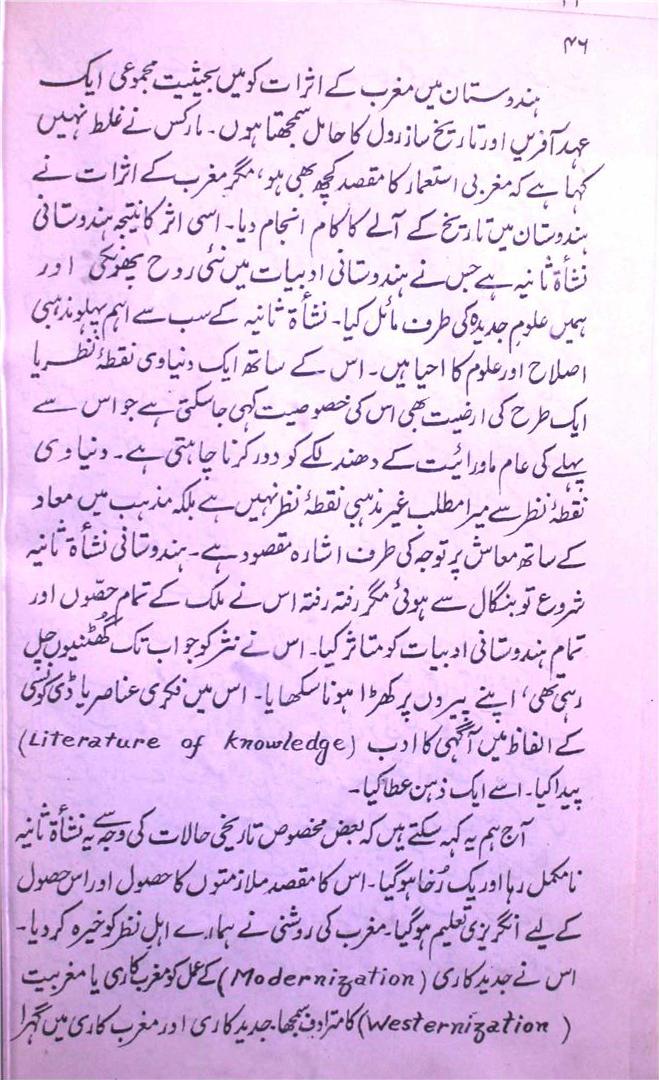 ۴۶
ہندوستان میں مغرب کے اثرات کو میں بحیثیت مجموعی ایک
عہد آفریں اور تاریخ ساز رول کا حامل سمجھتا ہوں۔ مارکس نے غلط نہیں
کہا ہے کہ مغربی استعمار کا مقصد کچھ بھی ہو، مگر مغرب کے اثرات نے
ہندوستان میں تاریخ کے آلے کا کام انجام دیا۔ اسی اثر کا نتیجہ ہندوستانی
نشأۃ ثانیہ ہے جس نے ہندوستانی ادبیات میں نئی روح پھونکی اور
ہمیں علوم جدیدہ کی طرف مائل کیا۔ نشأۃ ثانیہ کے سب سے اہم پہلو مذہبی
اصلاح اور علوم کا احیا ہیں۔ اس کے ساتھ ایک دنیاوی نقطۂ نظر یا
ایک طرح کی ارضیت بھی اس کی خصوصیت کہی جا سکتی ہے جو اس سے
پہلے کی عام ماورائیت کے دھندلکے کو دور کرنا چاہتی ہے۔ دنیاوی
نقطۂ نظر سے میرا مطلب غیر مذہبی نقطۂ نظر نہیں ہے بلکہ مذہب میں معاد
کے ساتھ معاش پر توجہ کی طرف اشارہ مقصود ہے۔ ہندوستانی نشأۃ ثانیہ
شروع تو بنگال سے ہوئی مگر رفتہ رفتہ اس نے ملک کے تمام حصّوں اور
تمام ہندوستانی ادبیات کو متاثر کیا۔ اس نے نثر کو جو اب تک گھٹنیوں چل
رہی تھی، اپنے پیروں پر کھڑا ہونا سکھایا۔ اس میں فکری عناصر یا ڈی کوئنسی
کے الفاظ میں آگہی کا ادب (Literature of knowledge)
پیدا کیا۔ اسے ایک ذہن عطا کیا۔
آج ہم یہ کہہ سکتے ہیں کہ بعض مخصوص تاریخی حالات کی وجہ سے یہ نشأۃ ثانیہ
نامکمل رہا اور یک رُخا ہو گیا۔ اس کا مقصد ملازمتوں کا حصول اور اس حصول
کے لیے انگریزی تعلیم ہو گیا۔ مغرب کی روشنی نے ہمارے اہل نظر کو خیرہ کر دیا۔
اس نے جدید کاری (Modernization) کے عمل کو مغرب کاری یا مغربیت
(Westernization) کا مترادف سمجھا۔ جدید کاری اور مغرب کاری میں گہرا